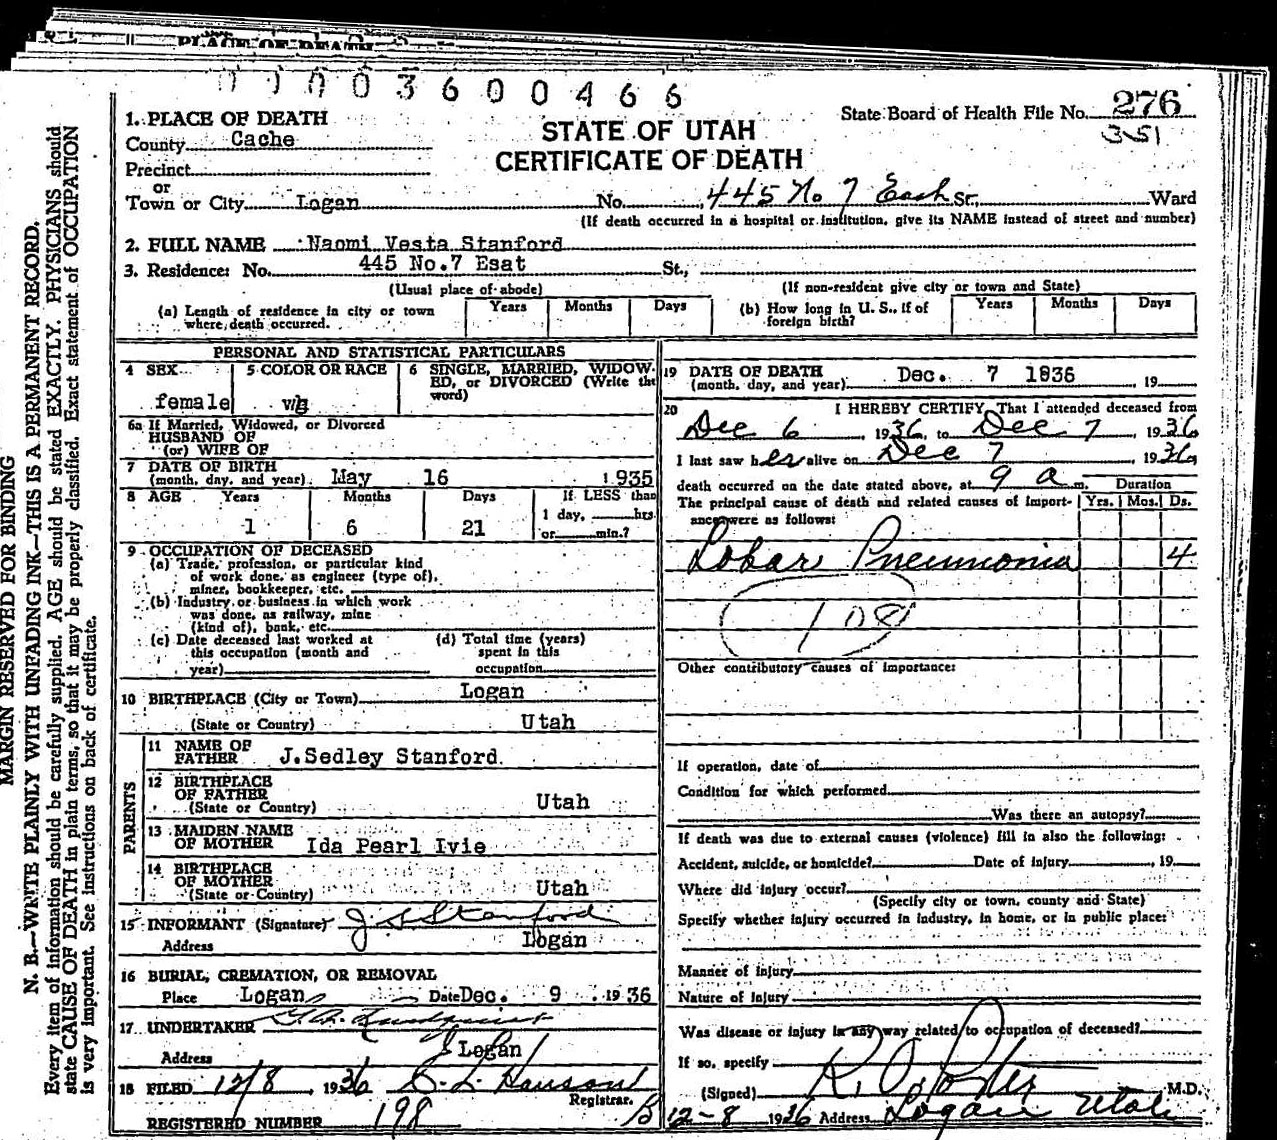 PLACE OF DEATH
00003600466
State Board of Health File No. 276
351
STATE OF UTAH
CERTIFICATE OF DEATH
1. PLACE OF DEATH
County Cache
Precinct
or
Town or City Logan No. 445 No 7 East St. Ward
(If death occurred in a hospital or institution, give its NAME instead of street and number)
2. FULL NAME Naomi Vesta Stanford
3. Residence: No. 445 No.7 Esat St.,
(Usual place of abode) (If non-resident give city or town and State)
(a) Length of residence in city or town where death occurred. Years Months Days
(b) How long in U. S., if of foreign birth? Years Months Days
PERSONAL AND STATISTICAL PARTICULARS
4 SEX female
5 COLOR OR RACE
6 SINGLE, MARRIED, WIDOWED, or DIVORCED (Write the word)
6a If Married, Widowed, or Divorced
HUSBAND OF
(or) WIFE OF
7 DATE OF BIRTH
(month, day, and year) May 16 1935
8 AGE Years Months Days If LESS than
1 day, hrs.
1 6 21 or min.?
9 OCCUPATION OF DECEASED
(a) Trade, profession, or particular kind
of work done, as engineer (type of),
miner, bookkeeper, etc.
(b) Industry or business in which work
was done, as railway, mine
(kind of), bank, etc.
(c) Date deceased last worked at
this occupation (month and
year)
(d) Total time (years)
spent in this
occupation
10 BIRTHPLACE (City or Town) Logan
(State or Country) Utah
PARENTS
11 NAME OF
FATHER J.Sedley Stanford
12 BIRTHPLACE
OF FATHER
(State or Country) Utah
13 MAIDEN NAME
OF MOTHER Ida Pearl Ivie
14 BIRTHPLACE
OF MOTHER
(State or Country) Utah
15 INFORMANT (Signature) J S Stanford
Address Logan
16 BURIAL, CREMATION, OR REMOVAL
Place Logan Date Dec. 9 1936
17 UNDERTAKER
Address Logan
18 FILED 12/8 1936
Registrar.
REGISTERED NUMBER 198
19 DATE OF DEATH
(month, day, and year) Dec. 7 1836, 19
20 I HEREBY CERTIFY, That I attended deceased from
Dec 6, 1936, to Dec 7, 1936
I last saw her alive on Dec 7 1936,
death occurred on the date stated above, at 9 a m. Duration
The principal cause of death and related causes of importance were as follows: Yrs. Mos. Ds.
Lobar Pneumonia 4
108
Other contributory causes of importance:
If operation, date of
Condition for which performed
Was there an autopsy?
If death was due to external causes (violence) fill in also the following:
Accident, suicide, or homicide? Date of injury, 19
Where did injury occur?
(Specify city or town, county and State)
Specify whether injury occurred in industry, in home, or in public place:
Manner of injury
Nature of injury
Was disease or injury in any way related to occupation of deceased?
If so, specify
(Signed) R. O. Porter M.D.
12-8 1936 Address Logan Utah
MARGIN RESERVED FOR BINDING
N. B.—WRITE PLAINLY WITH UNFADING INK—THIS IS A PERMANENT RECORD.
Every item of information should be carefully supplied. AGE should be stated EXACTLY. PHYSICIANS should
state CAUSE OF DEATH in plain terms, so that it may be properly classified. Exact statement of OCCUPATION
is very important. See instructions on back of certificate.